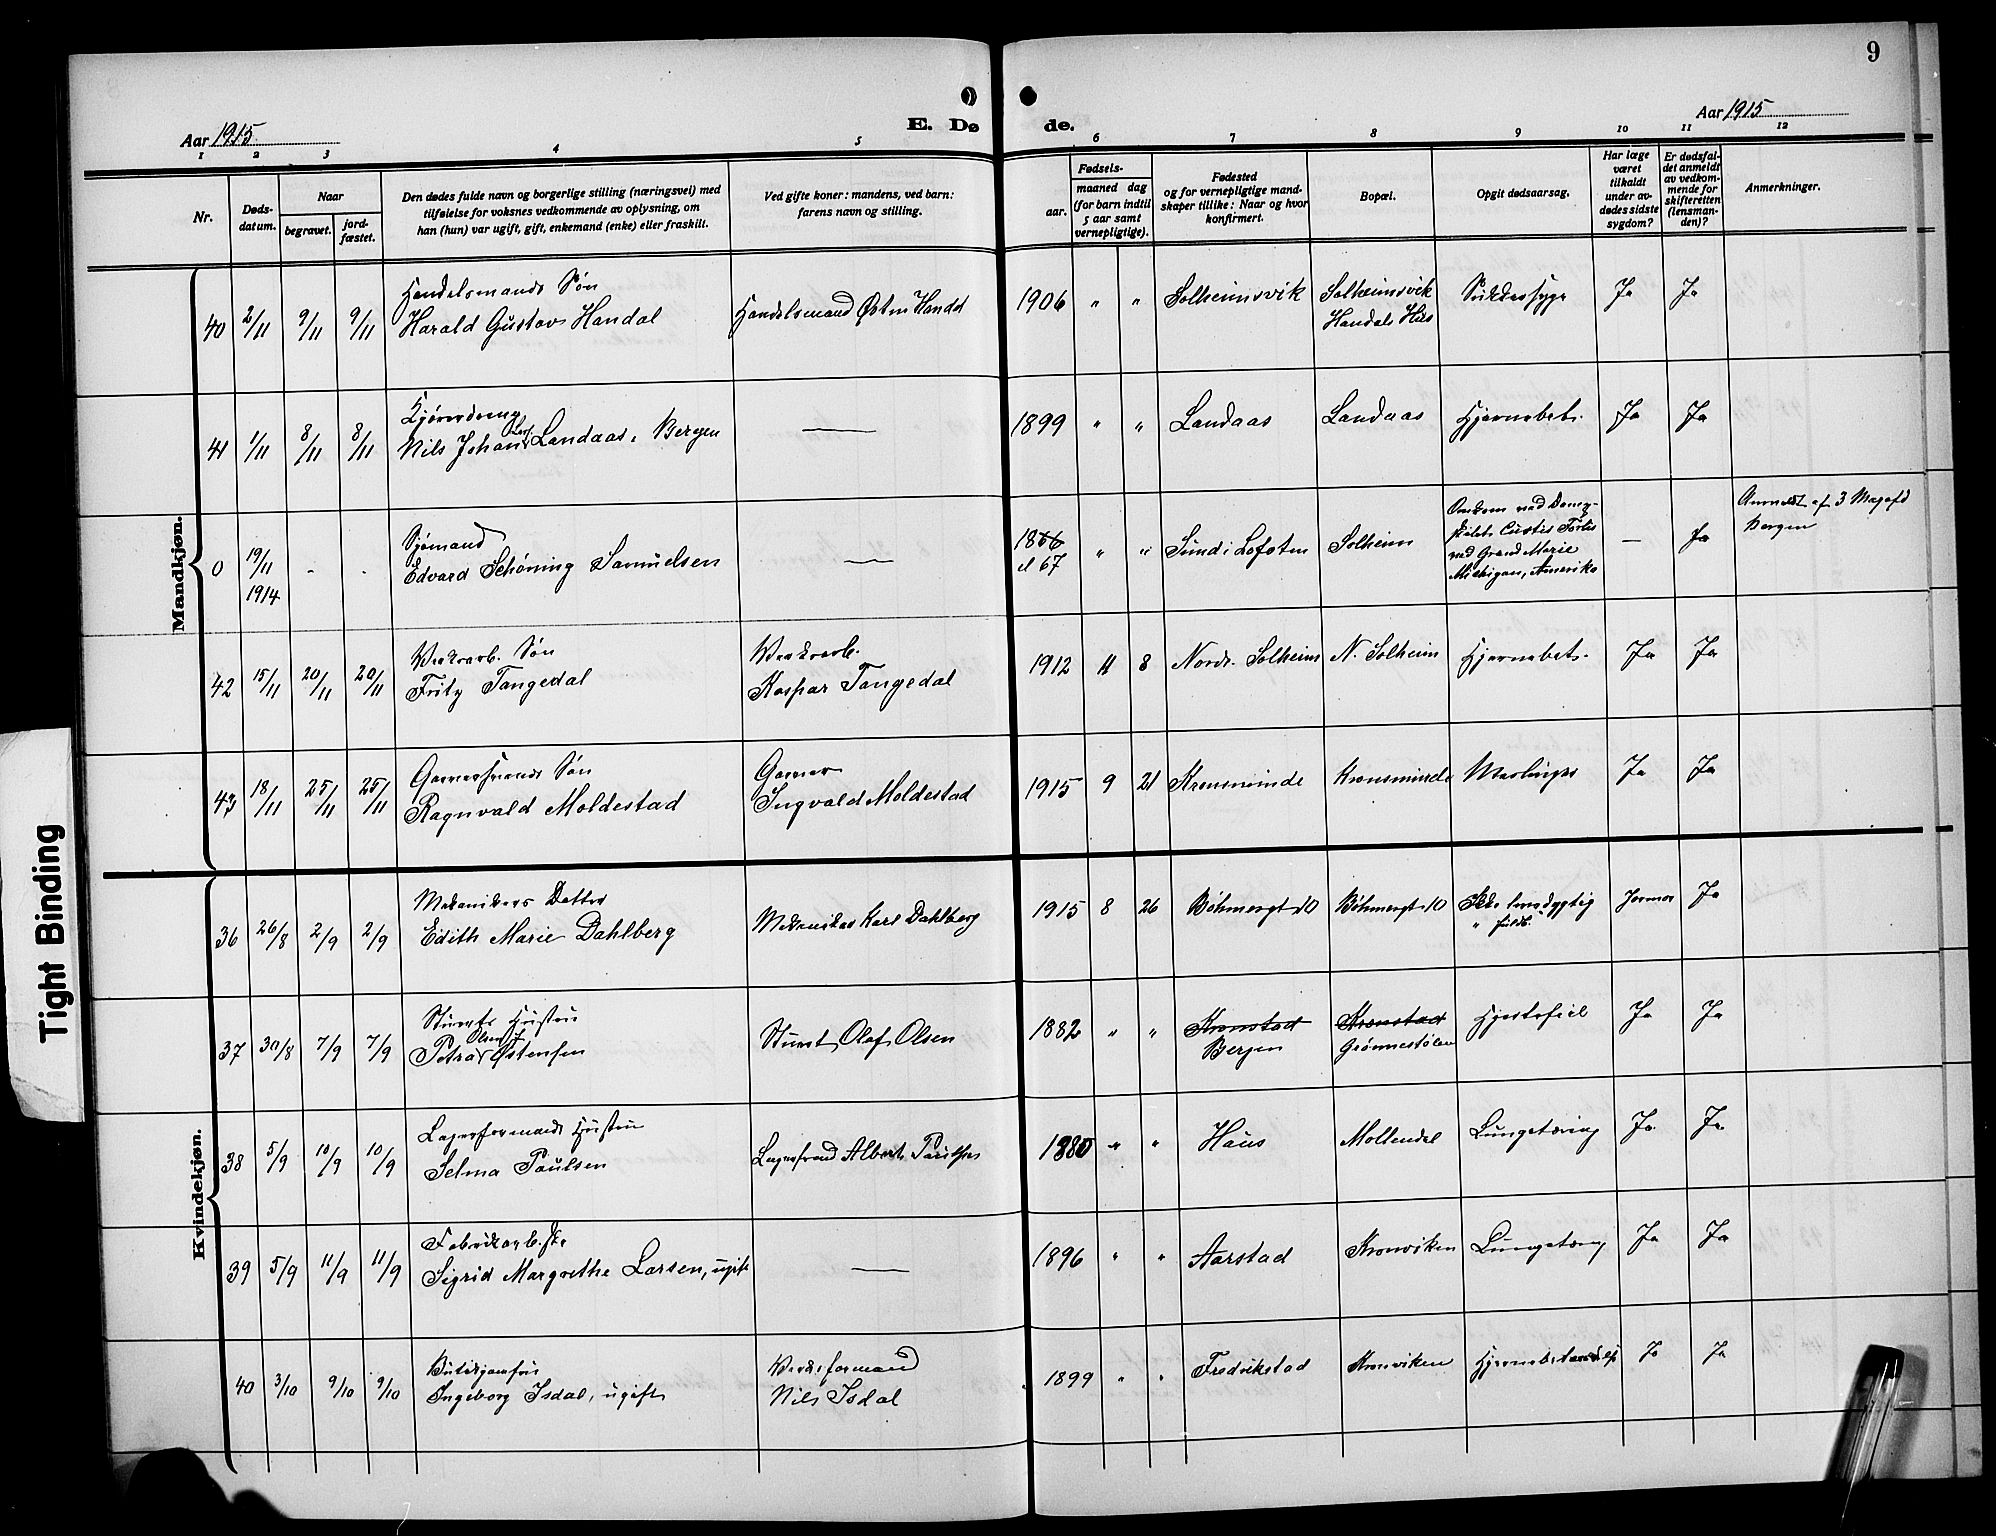 9
Aar 1915
E. Dø de.
Aar 1915
1 2 3 4 5 6 7 8 9 10 11 12
Nr.
Døds-
datum.
Naar
begravet.
jord-
fæstet.
Den dødes fulde navn og borgerlige stilling (næringsvei) med
tilføielse for voksnes vedkommende av oplysning, om
han (hun) var ugift, gift, enkemand (enke) eller fraskilt.
Ved gifte koner: mandens, ved barn:
farens navn og stilling.
Fødsels-
aar.
maaned dag
(for barn indtil
5 aar samt
vernepligtige).
Fødested
og for vernepligtige mand-
skaper tillike: Naar og hvor
konfirmert.
Bopæl.
Opgit dødsaarsag.
Har læge
været
tilkaldt
under av-
dødes sidste
sygdom?
Er dødsfal-
det anmeldt
av vedkom-
mende for
skifteretten
(lensman-
den)?
Anmerkninger.
Mandkjøn.
Handelsmands Søn
40 2/11 9/11 9/11 Harald Gustav Handal Handelsmand Østen Handal 1906 " " Solheimsvik Solheimsvik Sukkersyge Ja Ja
Handals Hus
Kjøredreng
41 1/11 8/11 8/11 Nils Johan Landaas, Bergen — 1899 " " Landaas Landaas Hjernebet. Ja Ja
Sjømand
0 19/11 1914 - - Edvard Schøning Samuelsen — 1866 el 67 " " Sund i Lofoten Solheim
Omkom ved Damp-
skibet Curtis Forlis
ved Grand Marie
Michigan, Amerika
— Ja
Anmeldt af 3 Magafd
Bergen
Verksarb. Søn Verksarb.
42 15/11 20/11 20/11 Fritz Tangedal Kaspar Tangedal 1912 11 8 Nordr. Solheim N. Solheim Hjernebet. Ja Ja
Søn Garver
43 18/11 25/11 25/11 Ragnvald Moldestad Ingvald Moldestad 1915 9 21 Kronsminde Kronsminde Ja Ja
Kvindekjøn.
Mekanikers Datter
36 26/8 2/9 2/9 Edith Marie Dahlberg Mekaniker Karl Dahlberg 1915 8 26 Bøhmergt 10 Bøhmergt 10 Ikke levedygtig Jormor Ja
" fuldb.
Stuerts Hustru
Olsen f.
37 30/8 7/9 7/9 Petra Østensen Stuert Olaf Olsen 1882 " " Kronstad Kronstad Hjertefeil Ja Ja
Bergen Grønnestølen
Lagerformands Hustru
38 5/9 10/9 10/9 Selma Paulsen Albert 1880 " " Haus Møllendal Lungetæring Ja Ja
Fabrikarb.ske
39 5/9 11/9 11/9 Sigrid Margrethe Larsen, ugift — 1896 " " Aarstad Kronviken Lungetæring Ja Ja
Butikjomfru Verksformand
40 3/10 9/10 9/10 Ingeborg Isdal, ugift Nils Isdal 1899 " " Fredrikstad Kronviken Ja Ja
Tight Binding